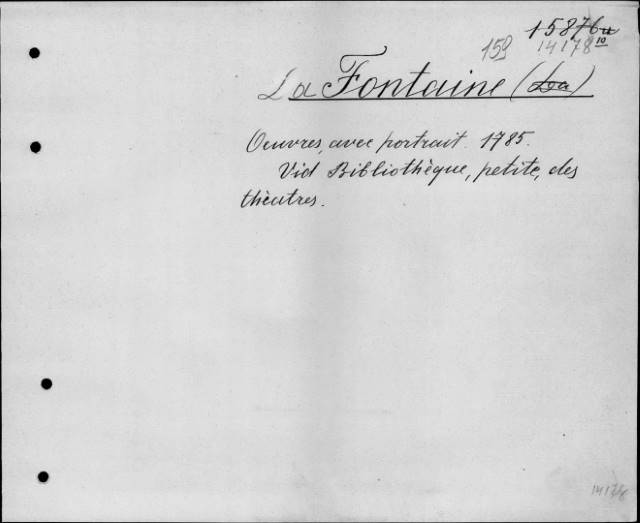 15876a
159 14178 10
La Fontaine (La)
Oeuvres, avec portrait. 1785.
Vid Bibliothèque, petite, des
théatres.
14178